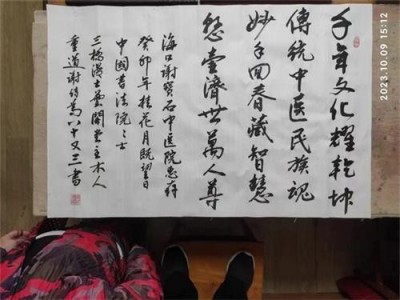 千年文化耀乾坤
傳統中医民族魂
妙手回春藏智慧
懸壺濟世萬人尊
海口謝寶石中医院惠存
癸卯年桂花月既望日
中國書法院々士
三橋漫士藝聞堂主木人
重道謝 八十又三書
2023.10.09 15:12